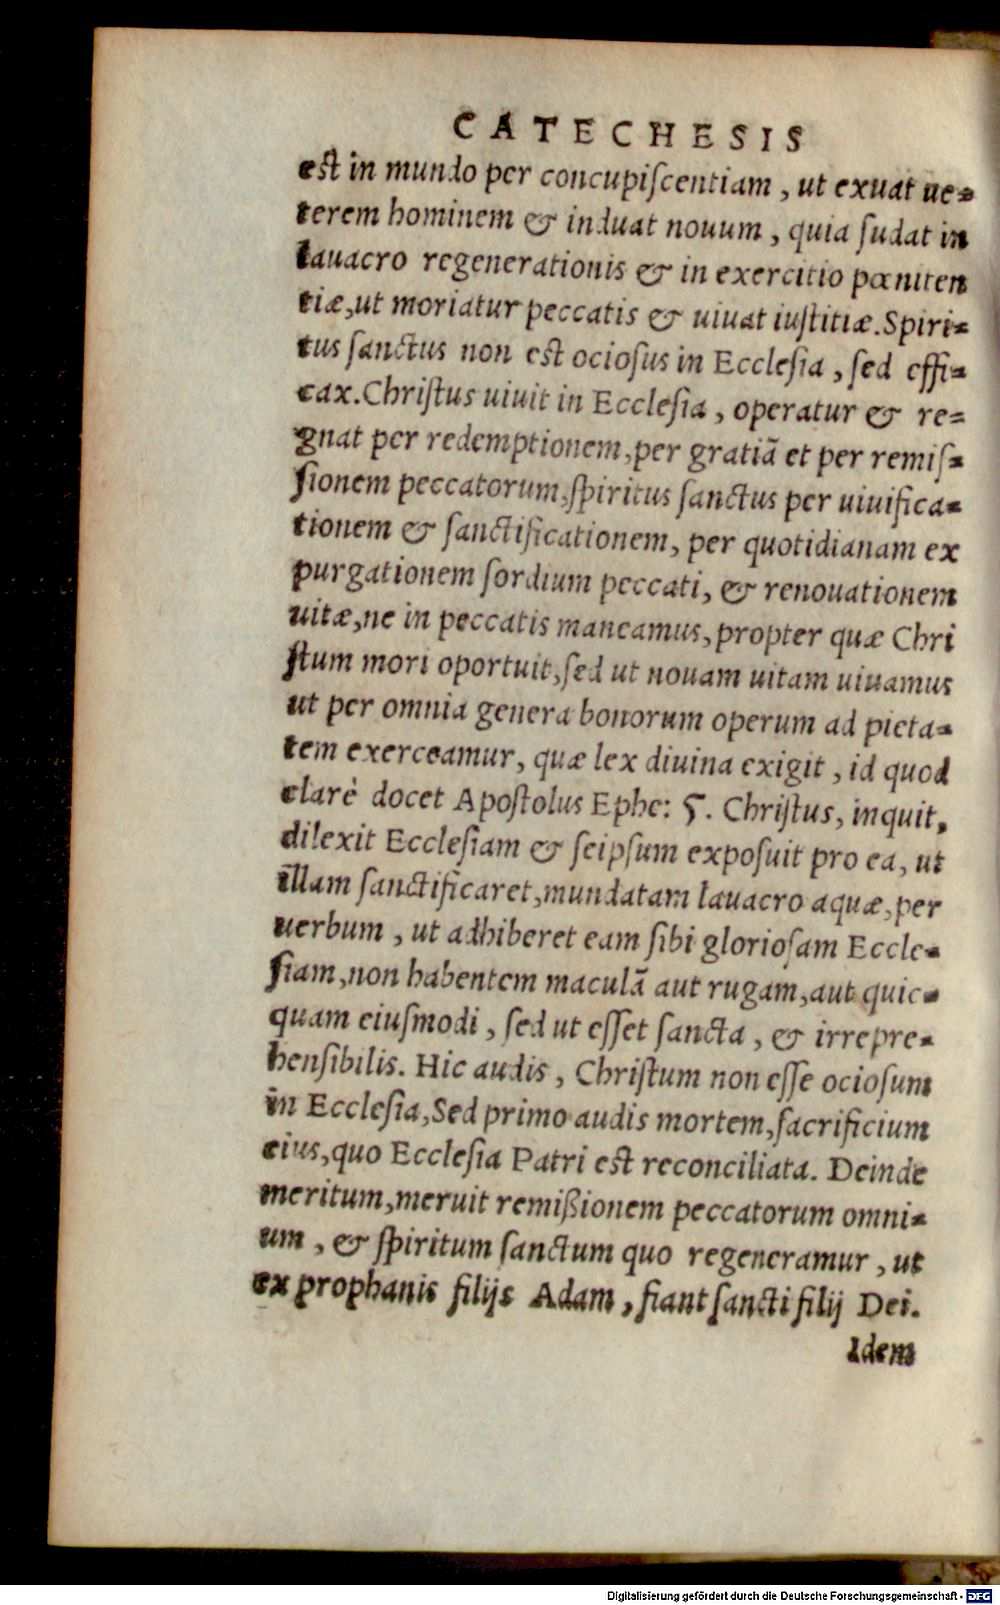 CATECHESIS
est in mundo per concupiſcentiam, ut exuat ue-
terem hominem & induat nouum, quia ſudat in
lauacro regenerationis & in exercitio pœniten
tiæ, ut moriatur peccatis & uiuat iuſtitiæ. Spiri-
tus ſanctus non est ocioſus in Eccleſia, ſed effi-
cax. Chriſtus uiuit in Eccleſia, operatur & re-
gnat per redemptionem, per gratiã et per remiſ-
ſionem peccatorum, ſpiritus ſanctus per uiuifica-
tionem & ſanctificationem, per quotidianam ex
purgationem ſordium peccati, & renouationem
uitæ, ne in peccatis maneamus, propter quæ Chri
ſtum mori oportuit, ſed ut nouam uitam uiuamus
ut per omnia genera bonorum operum ad pieta-
tem exerceamur, quæ lex diuina exigit, id quod
clarè docet Apoſtolus Ephe: 5. Chriſtus, inquit,
dilexit Eccleſiam & ſeipſum expoſuit pro ea, ut
illam ſanctificaret, mundatam lauacro aquæ, per
uerbum, ut adhiberet eam ſibi glorioſam Eccle-
ſiam, non habentem maculã aut rugam, aut quic-
quam eiuſmodi, ſed ut eſſet ſancta, & irrepre-
henſibilis. Hic audis, Chriſtum non eſſe ocioſum
in Eccleſia, Sed primo audis mortem, ſacrificium
eius, quo Eccleſia Patri est reconciliata. Deinde
meritum, meruit remißionem peccatorum omni-
um, & ſpiritum ſanctum quo regeneramur, ut
ex prophanis filijs Adam, fiant ſancti filij Dei.
Idem
Digitalisierung gefördert durch die Deutsche Forschungsgemeinschaft - DFG